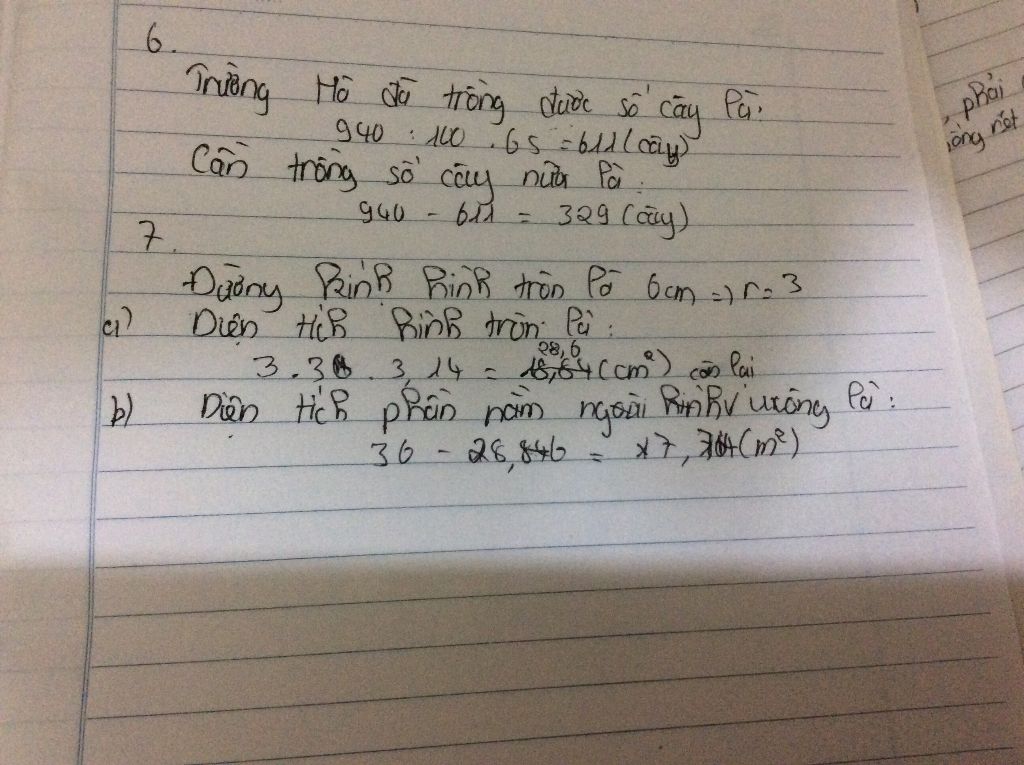 6.
Trường Hà đã trồng được số cây là:
940 : 100 . 65 = 611 (cây)
Cần trồng số cây nữa là:
940 - 611 = 329 (cây)
7.
Đường kính hình tròn là 6cm => r = 3
a) Diện tích hình tròn là:
28,6
3 . 3 . 3,14 = (cm²) còn lại
b) Diện tích phần nằm ngoài hình vuông là:
36 - 28,846 = (m²)
phải